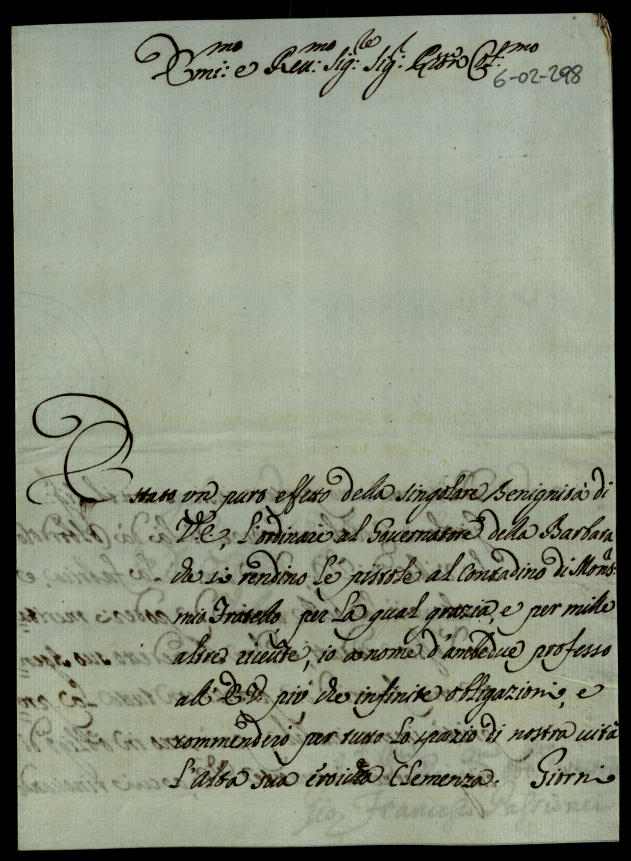 Emi:mo e Reu:mo Sig:re Sig:r Pron Col:mo
6-02-298
È stato un puro effetto della singolare Benignità di
V.E., l'ordinare al Governatore della Barbara
che si rendino le pistole al Contadino di Mons.r
mio Fratello, per la qual grazia, e per mille
altre riceute, io a nome d'ambedue professo
all' E.V. più che infinite obligazioni, e
commenderò per tutto lo spazio di nostra uita
l'alta sua eroica Clemenza. Giorni
Gio: Francesco Passionei